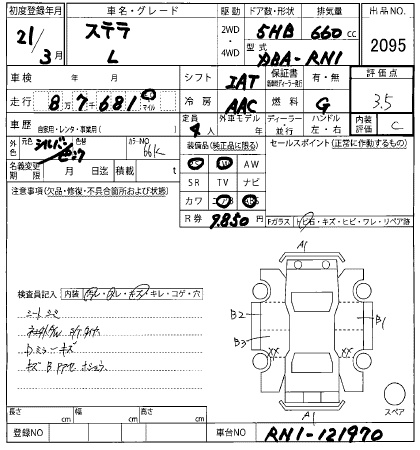 初度登録年月 車名・グレード 駆動 ドア数・形状 排気量 出品NO.
21/3月 ステラ L 2WD・4WD 5HB 660cc 2095
型式 DBA-RN1
車検 年 月 シフト IAT 保証書 有・無 評価点
走行 8万7681 km マイル 冷房 AAC 燃料 G 3.5
車歴 自家用・レンタ・事業用( ) 定員 4人 外車モデル 年 ディーラー・並行 ハンドル 左・右 内装評価 C
外色 元色 シルバー 色替 カラーNO 66K 装備品(純正品に限る) セールスポイント(正常に作動するもの)
名義変更期限 月 日迄 積載 t PS PW AW
SR TV ナビ
注意事項(欠品・修復・不具合箇所および状態) カワ エアB ABS
R券 9,850 Fガラス トビ石・キズ・ヒビ・ワレ・リペア跡
A1
検査員記入 内装 汚レ・スレ・キズ・キレ・コゲ・穴
シートシミ
B2 B1
B3 XX XX
Dミラーキズ
スペア
A1
長さ cm 幅 cm 高さ cm
登録NO 車台NO RN1-121970